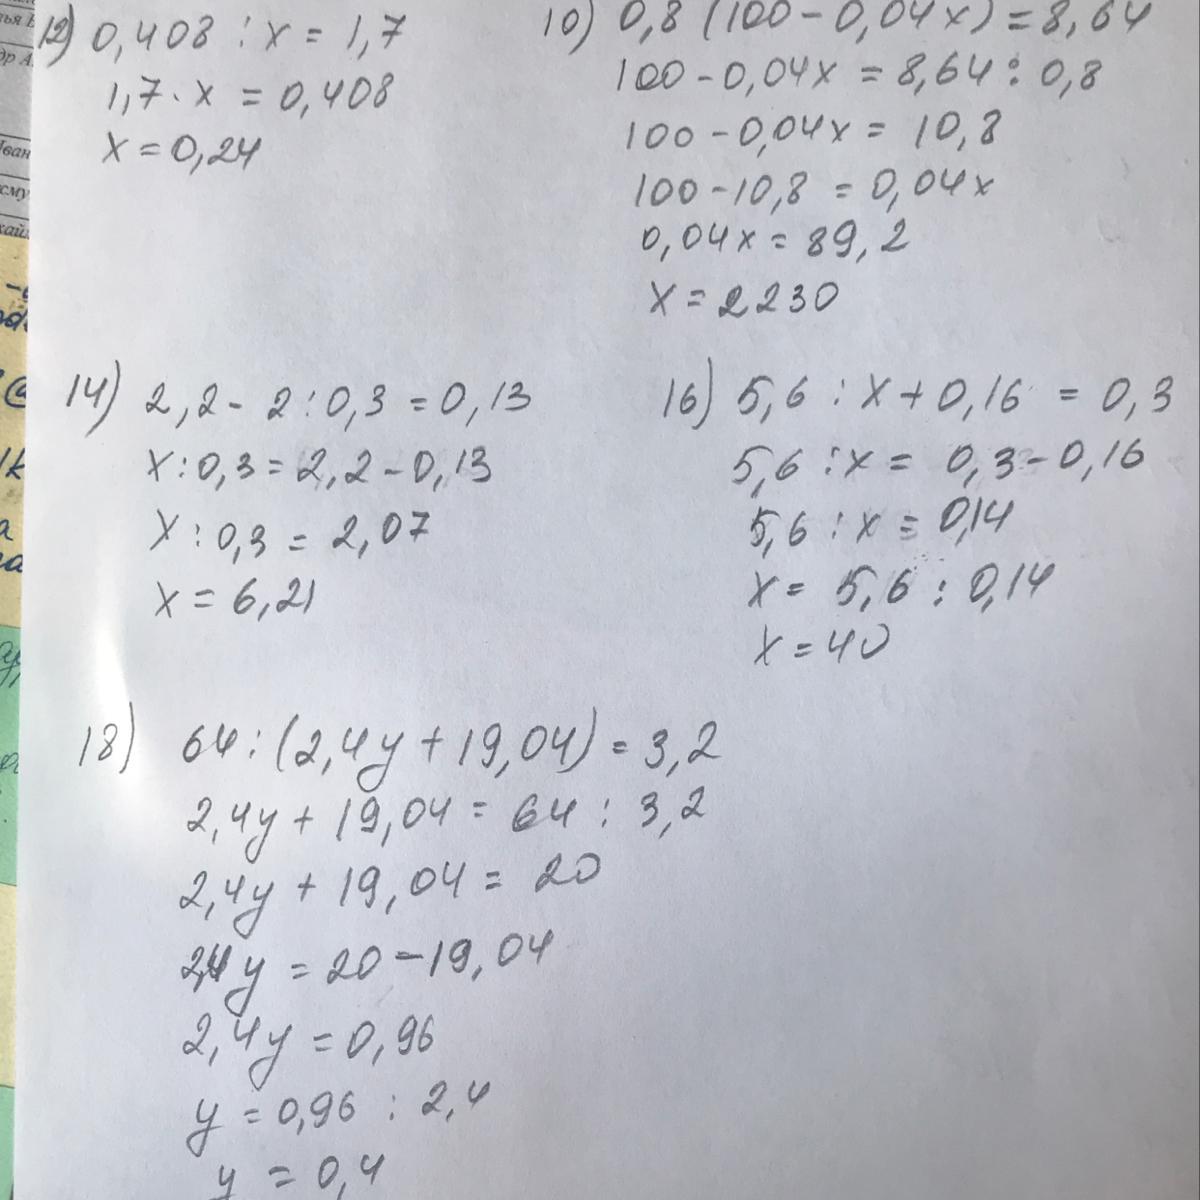 12) 0,408 : x = 1,7
1,7 · x = 0,408
x = 0,24
10) 0,8 (100 - 0,04x) = 8,64
100 - 0,04x = 8,64 : 0,8
100 - 0,04x = 10,8
100 - 10,8 = 0,04x
0,04x = 89,2
x = 2230
14) 2,2 - 2 : 0,3 = 0,13
x : 0,3 = 2,2 - 0,13
x : 0,3 = 2,07
x = 6,21
16) 5,6 : x + 0,16 = 0,3
5,6 : x = 0,3 - 0,16
5,6 : x = 0,14
x = 5,6 : 0,14
x = 40
18) 64 : (2,4y + 19,04) = 3,2
2,4y + 19,04 = 64 : 3,2
2,4y + 19,04 = 20
2,4y = 20 - 19,04
2,4y = 0,96
y = 0,96 : 2,4
y = 0,4